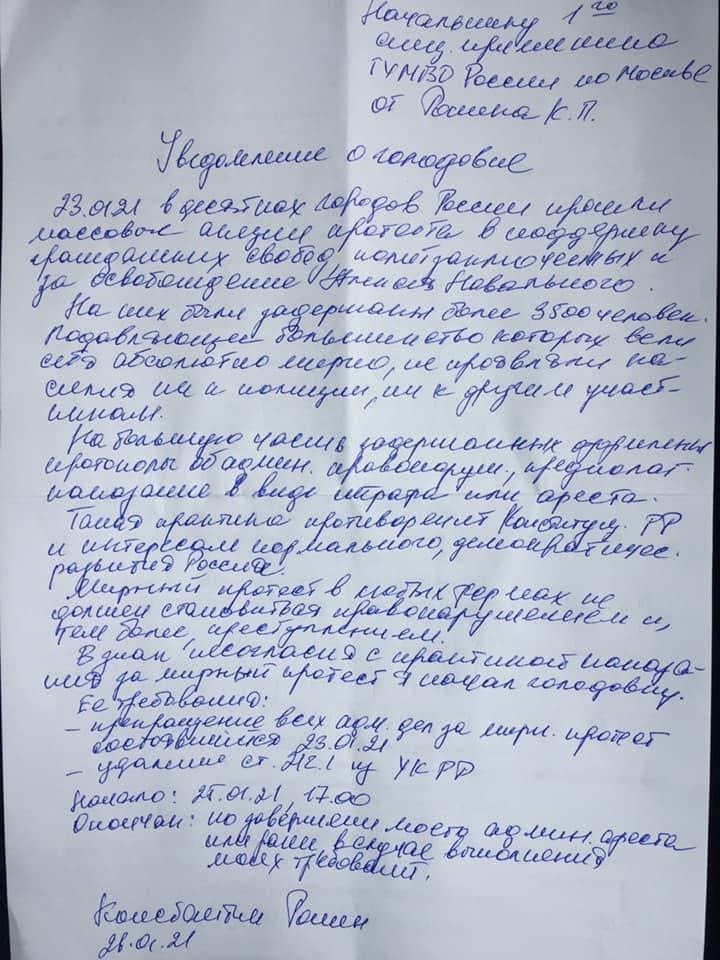 Начальнику 1го
спец. приемника
ГУ МВД России по Москве
от Ромина К.П.
Уведомление о голодовке
23.01.21 в десятках городов России прошли
массовые акции протеста в поддержку
гражданских свобод, политзаключенных и
за освобождение Алексея Навального.
На них были задержаны более 3500 человек.
Подавляющее большинство которых вели
себя абсолютно мирно, не проявляли на-
силия ни к полиции, ни к другим участ-
никам.
На большую часть задержанных оформлены
протоколы об админ. правонаруш., предполаг.
наказание в виде штрафа или ареста.
Такая практика противоречит Конституц. РФ
и интересам нормального, демократичес.
развития России.
Мирный протест в любых формах не
должен становиться правонарушением и,
тем более, преступлением.
В знак несогласия с практикой наказа-
ния за мирный протест я начал голодовку.
Ее требования:
– прекращение всех адм. дел за мирн. протест
состоявшийся 23.01.21
– удаление ст. 212.1 из УК РФ
Начало: 25.01.21, 17.00
Окончан: по завершении моего админ. ареста
или ранее в случае выполнения
моих требований.
Константин
26.01.21